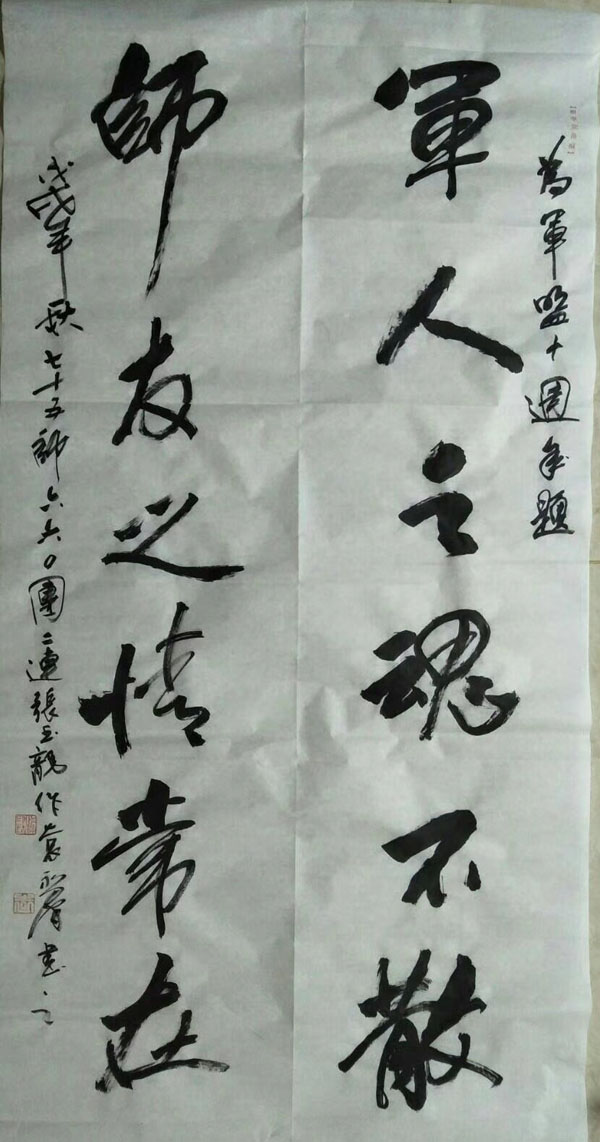 為軍盟十週年題
軍人之魂不散
師友之情常在
戊戌年秋七十五師六六〇團二連張玉龍作袁書之